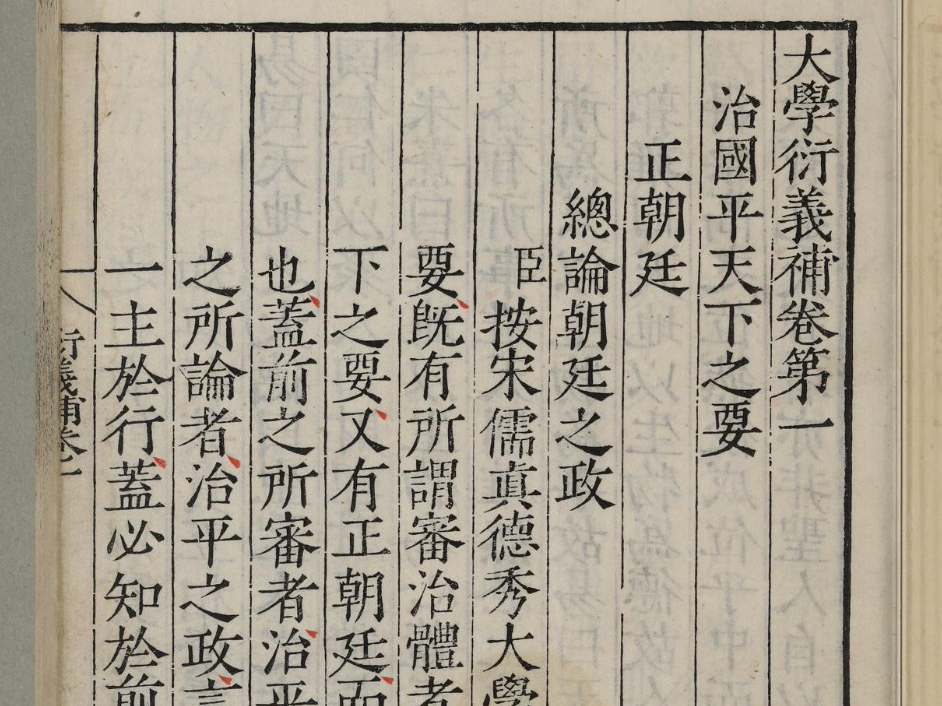 大學衍義補卷第一
治國平天下之要
正朝廷
總論朝廷之政
臣按宋儒真德秀大學
要既有所謂審治體者
下之要又有正朝廷而
也蓋前之所審者治平
之所論者治平之政言
一主於行蓋必知於前
衍義補卷一